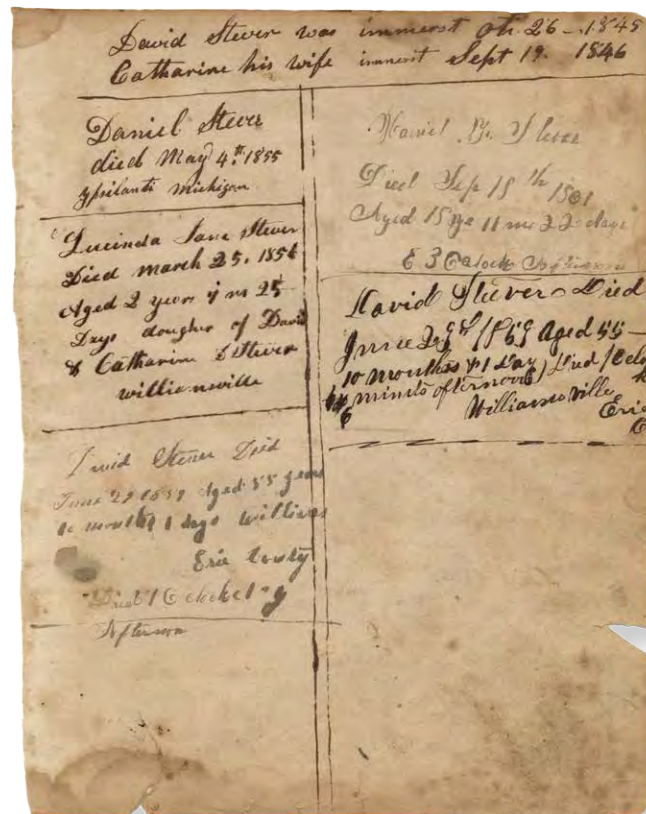 David Stever was immerst 26 - 1845
Catharine his wife immerst Sept 19. 1846
Daniel Stever
died May 4th. 1855
ypsilanti michigan
Lucinda Jane Stever
Died march 25. 1856
Aged 2 years m 25
Days doughter of David
& Catharine Stever
willianville
David Stever Died
June 29 Aged 55 years
10 months 1 days
Erie County
Died 1 Oclock
Afternoon
Stever
Died Sep 15th
Aged 15 11 22 days
Oclock Afternoon
David Stever Died
June 29th 1869 Aged 55 —
10 months & 1 Day Died 1
minits afternoon
Williamsville
Erie